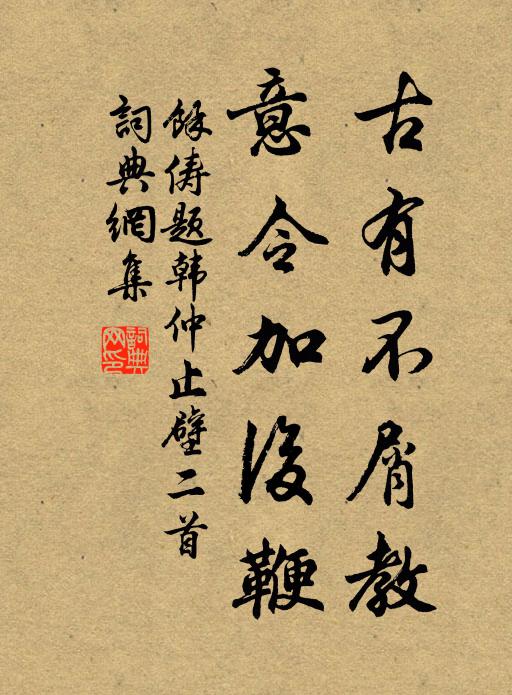 古有不屑教
意令加後鞭
餘俦题韩仲止壁二首
詞典網集
詞典网印